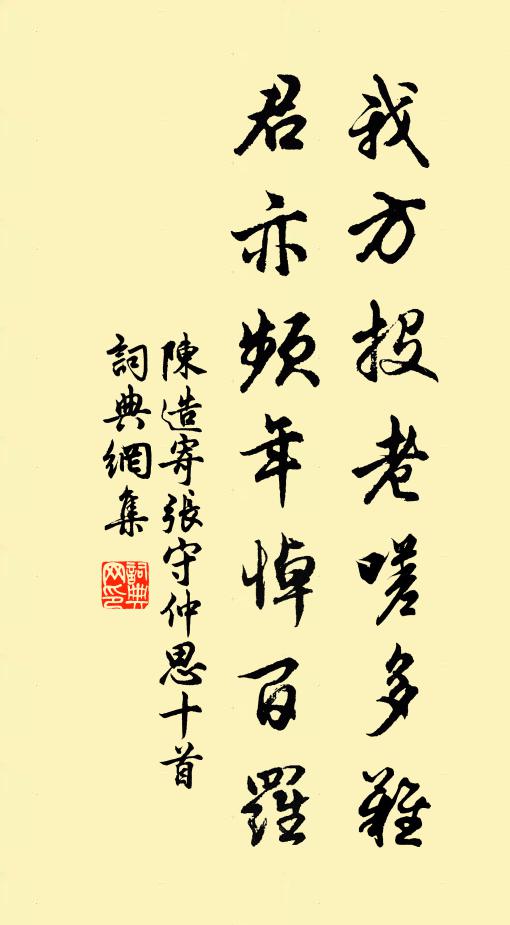 我方投老嗟多難
君亦頻年悼百羅
陳造寄張守仲思十首
詞典網集
詞典
网印